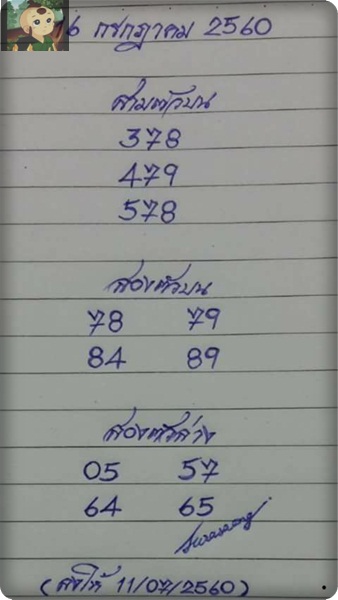 16 กรกฎาคม 2560
สามตัวบน
378
479
578
สองตัวบน
78 79
84 89
สองตัวล่าง
05 57
64 65
(ส่งให้ 11/07/2560)